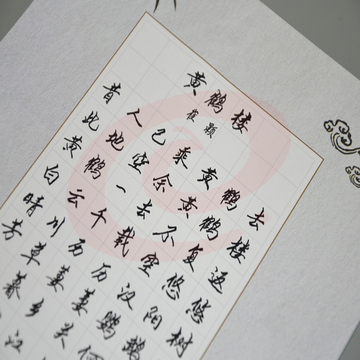 黄鹤楼
崔颢
昔人已乘黄鹤去
此地空余黄鹤楼
黄鹤一去不复返
白云千载空悠悠
晴川历历汉阳树
芳草萋萋鹦鹉
暮乡关何
江